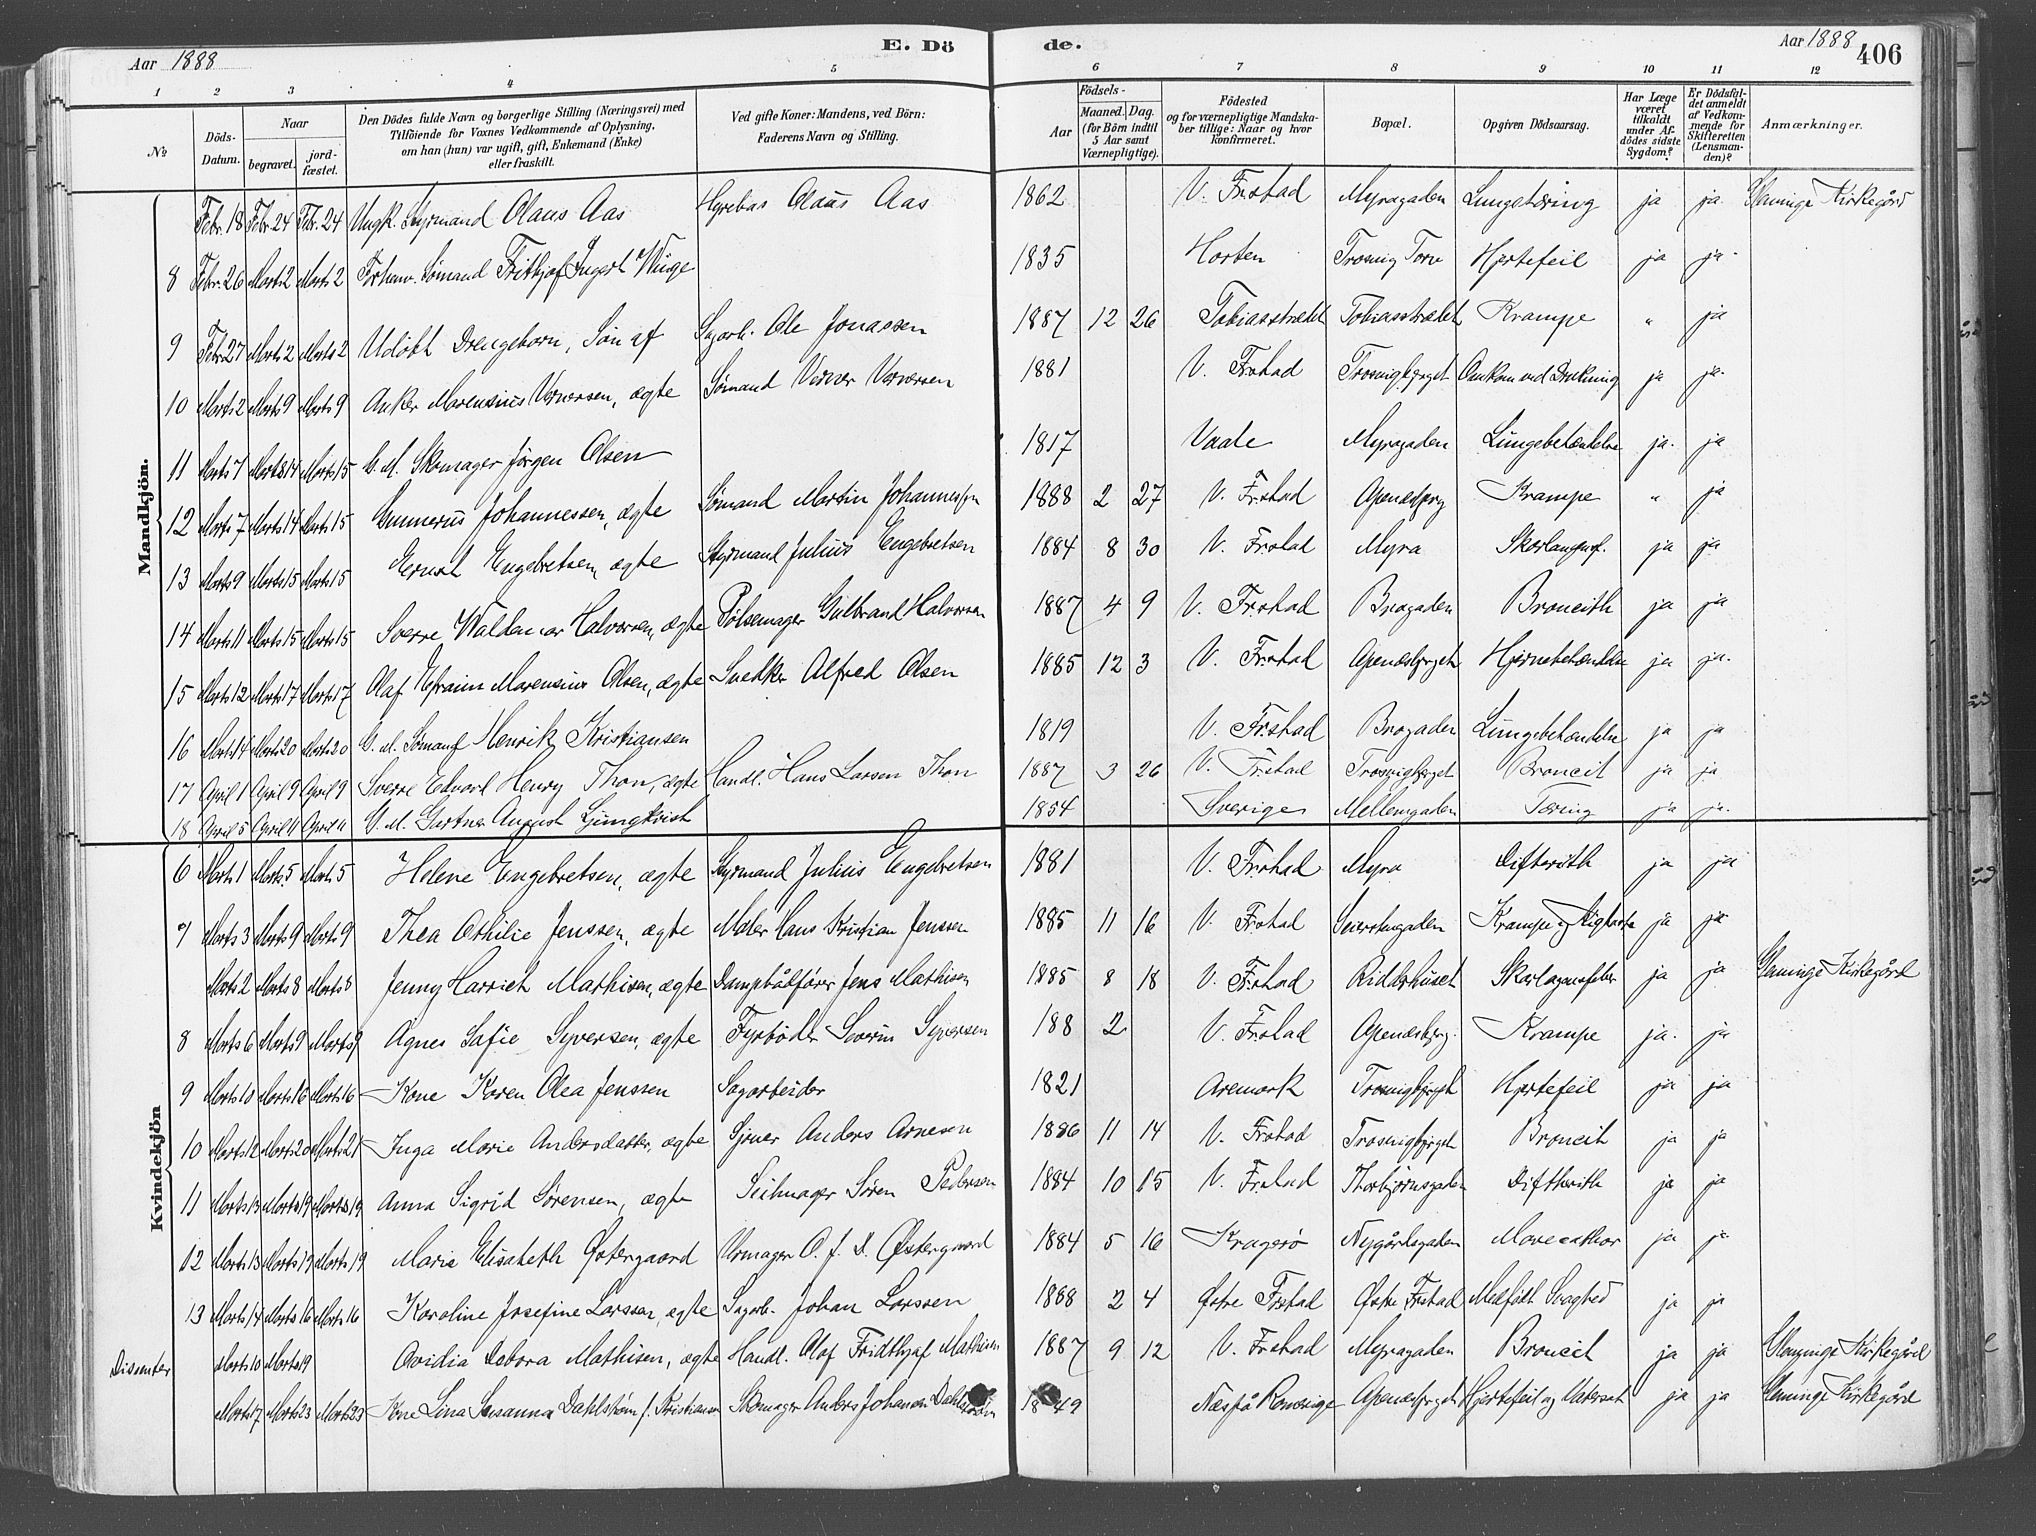 Aar 1888
E. Dö
de.
Aar 1888
406
1 2 3 4 5 6 7 8 9 10 11 12
№
Döds-Datum.
Naar
begravet.
jord-fæstet.
Den Dödes fulde Navn og borgerlige Stilling (Næringsvei) med
Tilföiende for Voxnes Vedkommende af Oplysning,
om han (hun) var ugift, gift, Enkemand (Enke)
eller fraskilt.
Ved gifte Koner: Mandens, ved Börn:
Faderens Navn og Stilling.
Födsels-
Aar
Maaned. Dag.
(for Börn indtil
5 Aar samt
Værnepligtige).
Födested
og for værnepligtige Mandska-
ber tillige: Naar og hvor
konfirmeret.
Bopæl.
Opgiven Dödsaarsag.
Har Læge
været
tilkaldt
under Af-
dödes sidste
Sygdom?
Er Dödsfal-
det anmeldt
af Vedkom-
mende for
Skifteretten
(Lensman-
den)?
Anmærkninger.
Mandkjön.
Febr. 18 Febr. 24 Febr. 24 Ungk. Styrmand Olaus Aas Hyrebas Olaus Aas 1862 V. Frstad Myragaden Lungetæring ja ja Gleminge Kirkegård
8 Febr. 26 Marts 2 Marts 2 Forhenv. Sømand Frithjof Wiige 1835 Horten Trosvig Torv Hjertefeil ja ja
9 Febr. 27 Marts 2 Marts 2 Udøbt Drengebarn, Søn af Sagarb. Ole Jonassen 1887 12 26 Tobiasstrædet Tobiasstrædet Krampe " ja
10 Marts 2 Marts 9 Marts 9 Anker Marensius Vernersen, ægte Sømand Verner Vernersen 1881 V. Frstad Trosvigbjerget Omkom ved Drukning ja ja
11 Marts 7 Marts 14 Marts 15 G. M. Skomager Jørgen Olsen 1817 Vaale Myragaden Lungebetændelse ja ja
12 Marts 7 Marts 14 Marts 15 Gunnerus Johannessen, ægte Sømand Martin Johannessen 1888 2 27 V. Frstad Apenæsbjerg Krampe " ja
13 Marts 9 Marts 15 Marts 15 Ernst Engebretsen, ægte Styrmand Julius Engebretsen 1884 8 30 V. Frstad Myra Skarlagensf. ja ja
14 Marts 11 Marts 15 Marts 15 Sverre Waldemar Halvorsen, ægte Pølsemager Gulbrand Halvorsen 1887 4 9 V. Frstad Brogaden Broncith ja ja
15 Marts 12 Marts 17 Marts 17 Olaf Efraim Marensius Olsen, ægte Snedker Alfred Olsen 1885 12 3 V. Frstad Apenæsbjerget Hjernebetændelse ja ja
16 Marts 14 Marts 20 Marts 20 G. M. Sømand Henrik Kristiansen 1819 V. Frstad Brogaden Lungebetændelse ja ja
17 April 1 April 9 April 9 Sverre Edvard Henry Thon, ægte Handl. Hans Larsen Thon 1887 3 26 V. Frstad Trosvigbjerget Broncit ja ja
18 April 5 April 11 April 11 G. M. Gartner August Ljungkvist 1854 Sverige Mellemgaden Tæring ja ja
Kvindekjön
6 Marts 1 Marts 5 Marts 5 Helene Engebretsen, ægte Styrmand Julius Engebretsen 1881 V. Frstad Myra Difterith ja ja
7 Marts 3 Marts 9 Marts 9 Thea Othilie Jenssen, ægte Maler Hans Kristian Jenssen 1885 11 16 V. Frstad Krampe ja ja
Marts 2 Marts 8 Marts 8 Jenny Harriet Mathisen, ægte Dampbådfører Jens Mathisen 1885 8 18 V. Frstad Ridderhuset Skarlagensfeber ja ja Glemminge Kirkegård
8 Marts 6 Marts 9 Marts 9 Agnes Sofie Syversen, ægte Fyrbøder Severin Syversen 188 2 V. Frstad Apenæsbjerg. Krampe ja ja
9 Marts 10 Marts 16 Marts 16 Kone Karen Olea Jenssen Sagarbeider 1821 Aremark Trosvigbjerget Hjertefeil ja ja
10 Marts 12 Marts 20 Marts 21 Inga Marie Andersdatter, ægte Sjouer Anders Arnesen 1886 11 14 V. Frstad Trosvigbjerget Broncit ja ja
11 Marts 13 Marts 19 Marts 19 Anna Sigrid Sørensen, ægte Seilmager Søren Pedersen 1884 10 15 V. Frstad Thorbjørnsgaden Diftherith ja ja
12 Marts 13 Marts 19 Marts 19 Marie Elisabeth Østergaard Urmager O. J. D. Østergaard 1884 5 16 Kragerø Nygårdsgaden Mavecathar ja ja
13 Marts 14 Marts 16 Marts 16 Karoline Josefine Larssen, ægte Sagarb. Johan Larssen 1888 2 4 Østre Frstad Østre Frstad Medfødt Svaghed ja ja
Dissenter Marts 10 Marts 19 Ovidia Debora Mathisen, ægte Handl. Olaf Fridthjof Mathisen 1887 9 12 V. Frstad Myragaden Broncit ja ja Glemminge Kirkegård
Marts 17 Marts 23 Marts 23 Kone Lina Susanna Dahlstrøm f. Kristiansen Skomager Anders Johansen Dahlstrøm 1849 Næs på Romerige Apenæsbjerget Hjertefeil og Vatersot ja ja Gleminge Kirkegård